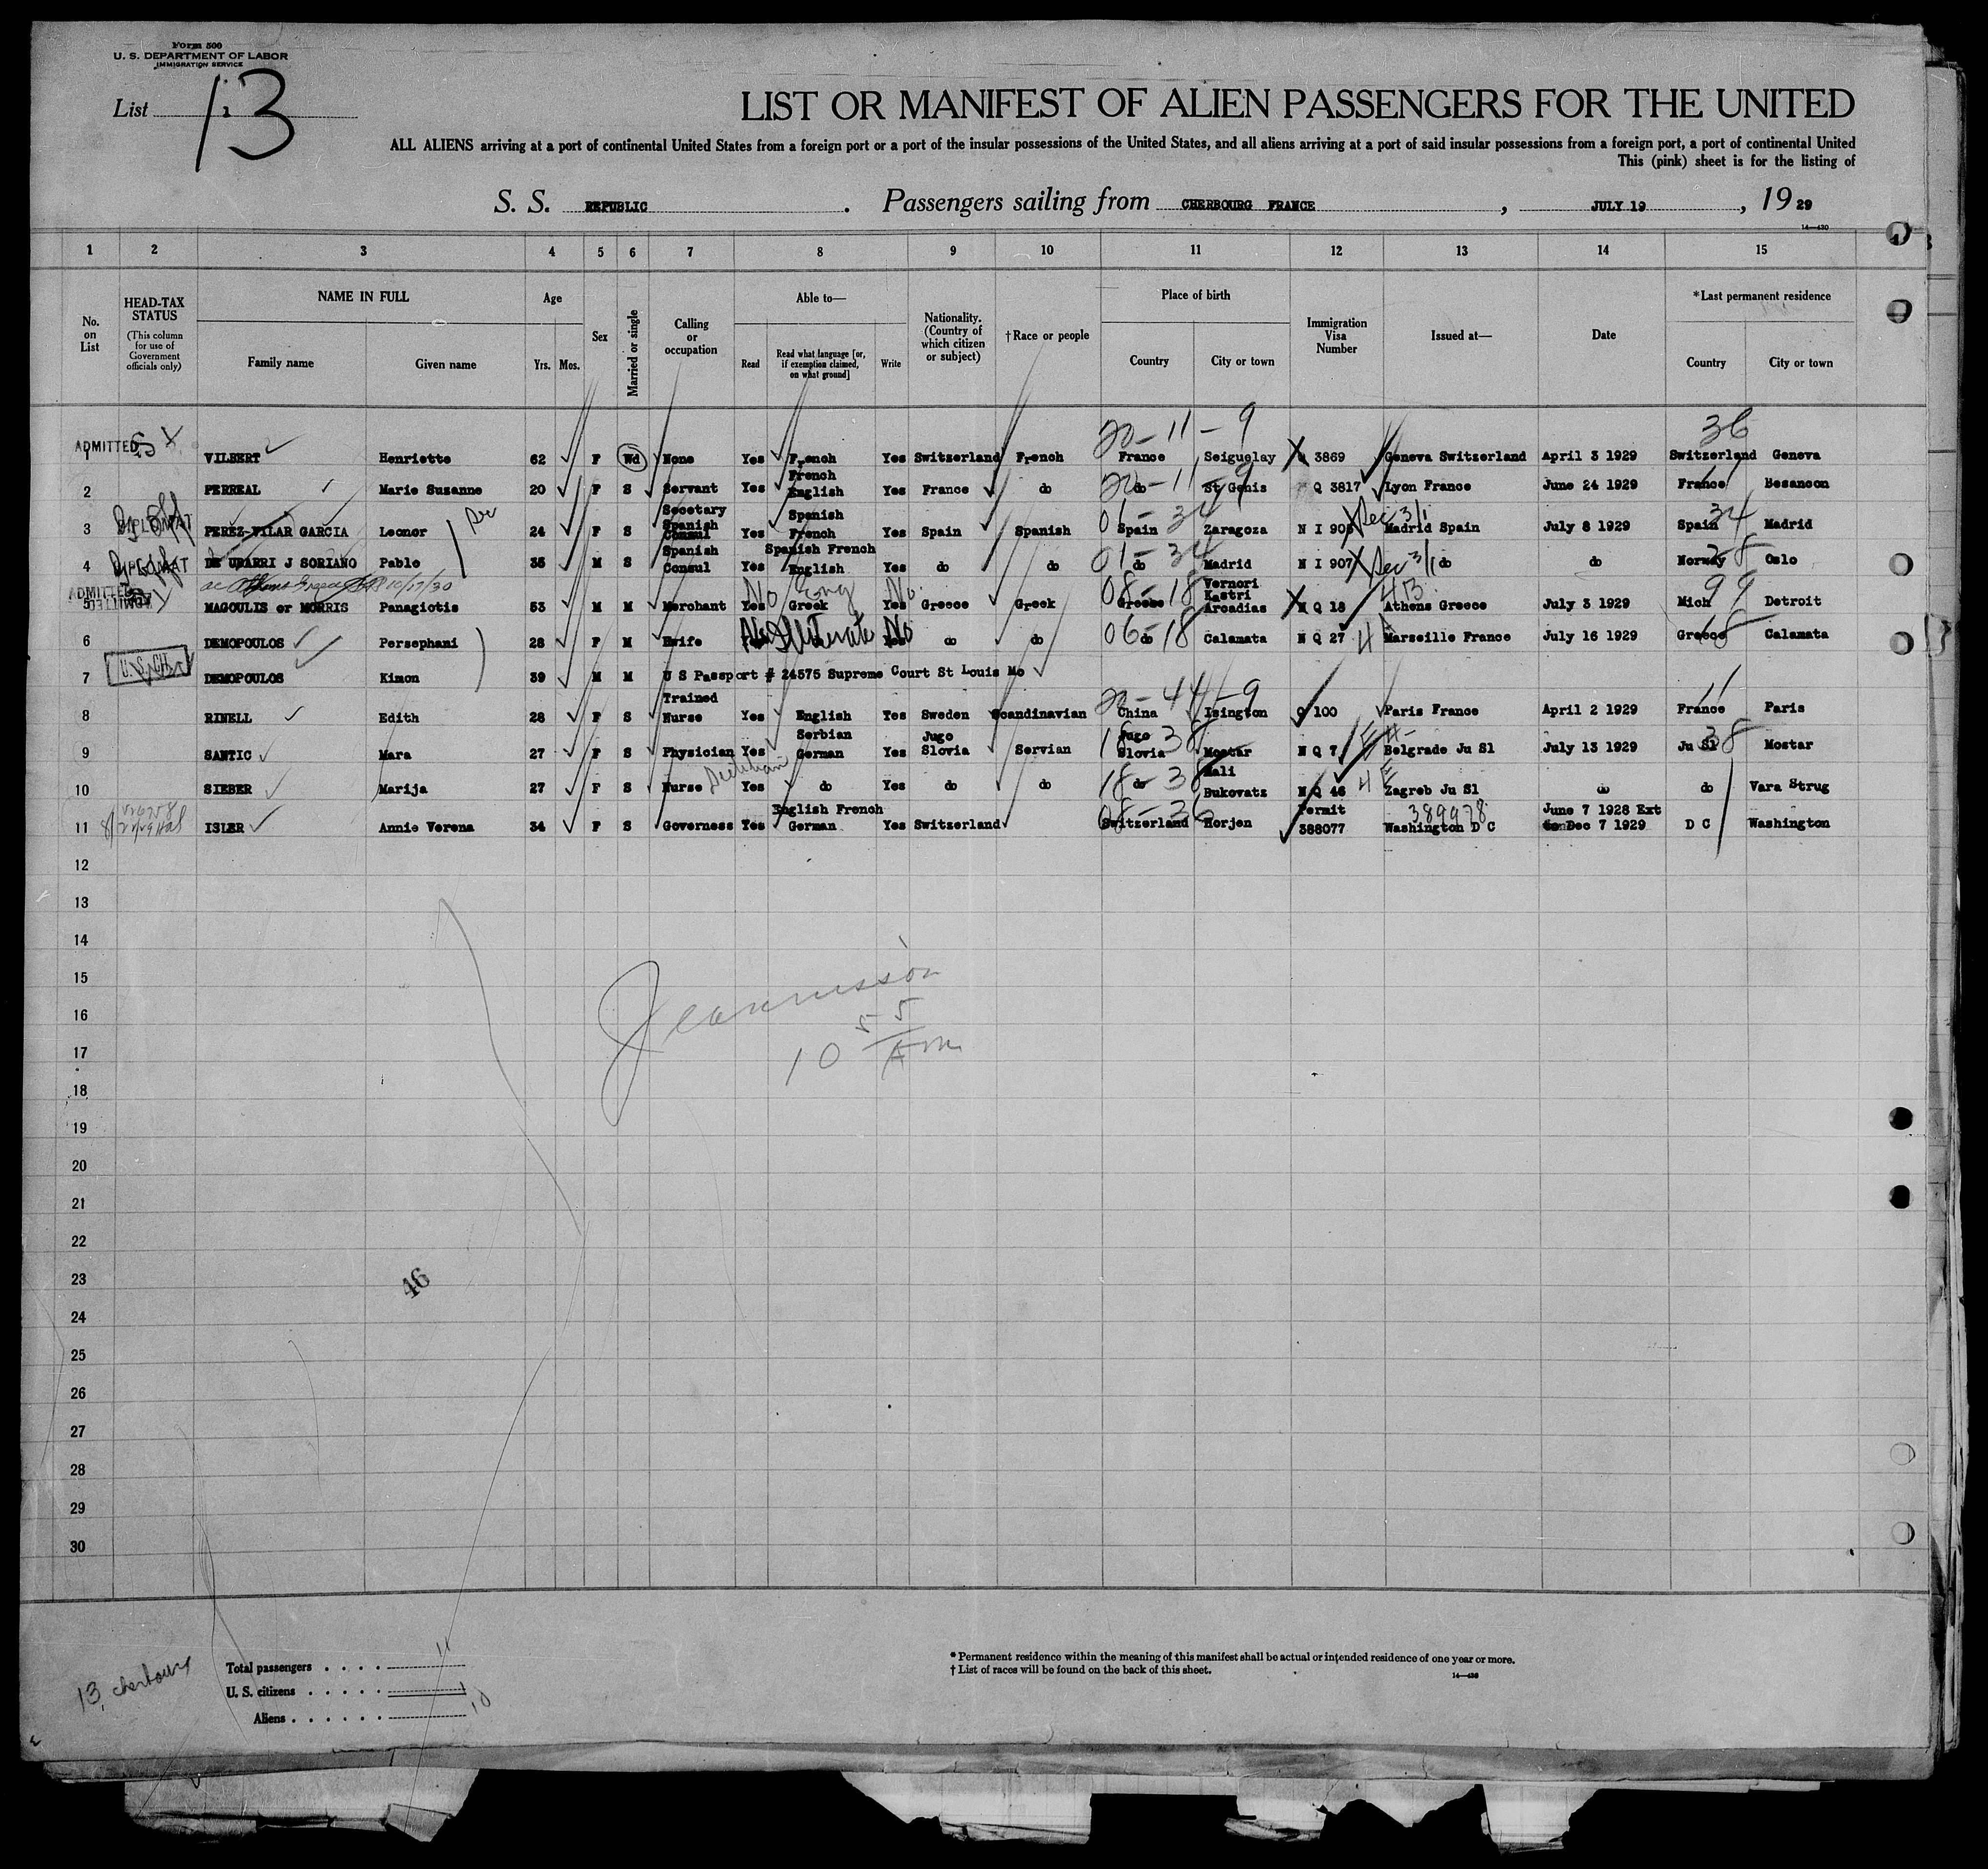 Form 500
U. S. DEPARTMENT OF LABOR
IMMIGRATION SERVICE
List 13
LIST OR MANIFEST OF ALIEN PASSENGERS FOR THE UNITED
ALL ALIENS arriving at a port of continental United States from a foreign port or a port of the insular possessions of the United States, and all aliens arriving at a port of said insular possessions from a foreign port, a port of continental United
This (pink) sheet is for the listing of
S. S. REPUBLIC. Passengers sailing from CHERBOURG FRANCE, JULY 19, 1929
14—430
1 2 3 4 5 6 7 8 9 10 11 12 13 14 15
No. on List
HEAD-TAX STATUS
(This column for use of Government officials only)
NAME IN FULL
Family name Given name
Age
Yrs. Mos.
Sex
Married or single
Calling or occupation
Able to—
Read
Read what language [or, if exemption claimed, on what ground]
Write
Nationality. (Country of which citizen or subject)
† Race or people
Place of birth
Country City or town
Immigration Visa Number
Issued at—
Date
* Last permanent residence
Country City or town
20-11-9 36
ADMITTED
1 VILBERT Henriette 62 F Wd None Yes French Yes Switzerland French France Seiguelay 3869 Geneva Switzerland April 3 1929 Switzerland Geneva
2 PERREAL Marie Suzanne 20 F S Servant Yes French English Yes France do do St Genis Q 3817 Lyon France June 24 1929 France Besancon
DIPLOMAT
3 PEREZ-VILAR GARCIA Leonor 24 F S Secetary Spanish Consul Yes Spanish French Yes Spain Spanish Spain Zaragoza N I 905 Sec 3/1 Madrid Spain July 8 1929 Spain Madrid
DIPLOMAT
4 DE UBARRI J SORIANO Pablo 35 M S Spanish Consul Yes Spanish French English Yes do do do Madrid N I 907 Sec 3/1 do do Norway Oslo
ADMITTED
5 MAGOULIS or MORRIS Panagiotis 53 M M Merchant Yes No Greek Eng Yes No. Greece Greek Greece Vernori Kastri Arcadias N Q 18 4B Athens Greece July 3 1929 Mich 99 Detroit
6 DEMOPOULOS Persephani 28 F M Hwife No Illiterate No do do do Calamata N Q 27 Marseille France July 16 1929 Greece Calamata
U. S. CIT.
7 DEMOPOULOS Kimon 39 M M U S Passport # 24575 Supreme Court St Louis Mo
8 RINELL Edith 28 F S Trained Nurse Yes English Yes Sweden Scandinavian China Isington Q 100 Paris France April 2 1929 France Paris
9 SANTIC Mara 27 F S Physician Yes Serbian German Yes Jugo Slovia Servian Jugo Slovia Mostar N Q 7 Belgrade Ju Sl July 13 1929 Ju Sl Mostar
10 SIEBER Marija 27 F S Nurse Yes do Yes do do do Mali Bukovatz N Q 46 Zagreb Ju Sl do do Vara Strug
11 ISLER Annie Verena 34 F S Governess Yes English French German Yes Switzerland Switzerland Horjen Permit 388077 389978 Washington D C June 7 1928 Ext to Dec 7 1929 D C Washington
12
13
14
15
16
17
18
19
20
21
22
23
24
25
26
27
28
29
30
10 55 AM
46
13, cherbourg
Total passengers . . . . 11
U. S. citizens . . . . . 1
Aliens . . . . . . 10
* Permanent residence within the meaning of this manifest shall be actual or intended residence of one year or more.
† List of races will be found on the back of this sheet.
14—430